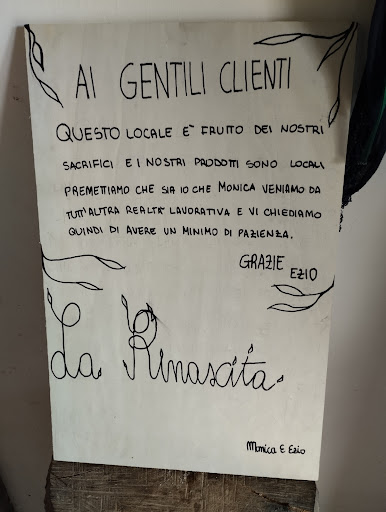 AI GENTILI CLIENTI
QUESTO LOCALE E' FRUITO DEI NOSTRI
SACRIFICI E I NOSTRI PRODOTTI SONO LOCALI
PREMETTIAMO CHE SIA IO CHE MONICA VENIAMO DA
TUTT'ALTRA REALTA' LAVORATIVA E VI CHIEDIAMO
QUINDI DI AVERE UN MINIMO DI PAZIENZA.
GRAZIE
EZIO
La Rinascita
Monica E Ezio